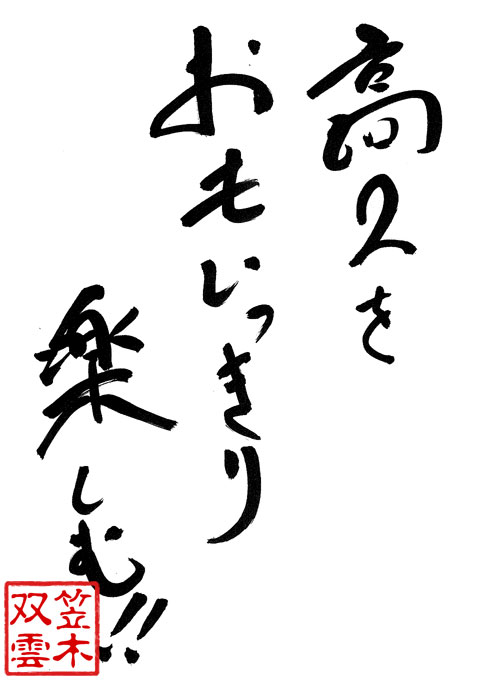 高久を
おもいっきり
楽しむ!!
笠木
双雲